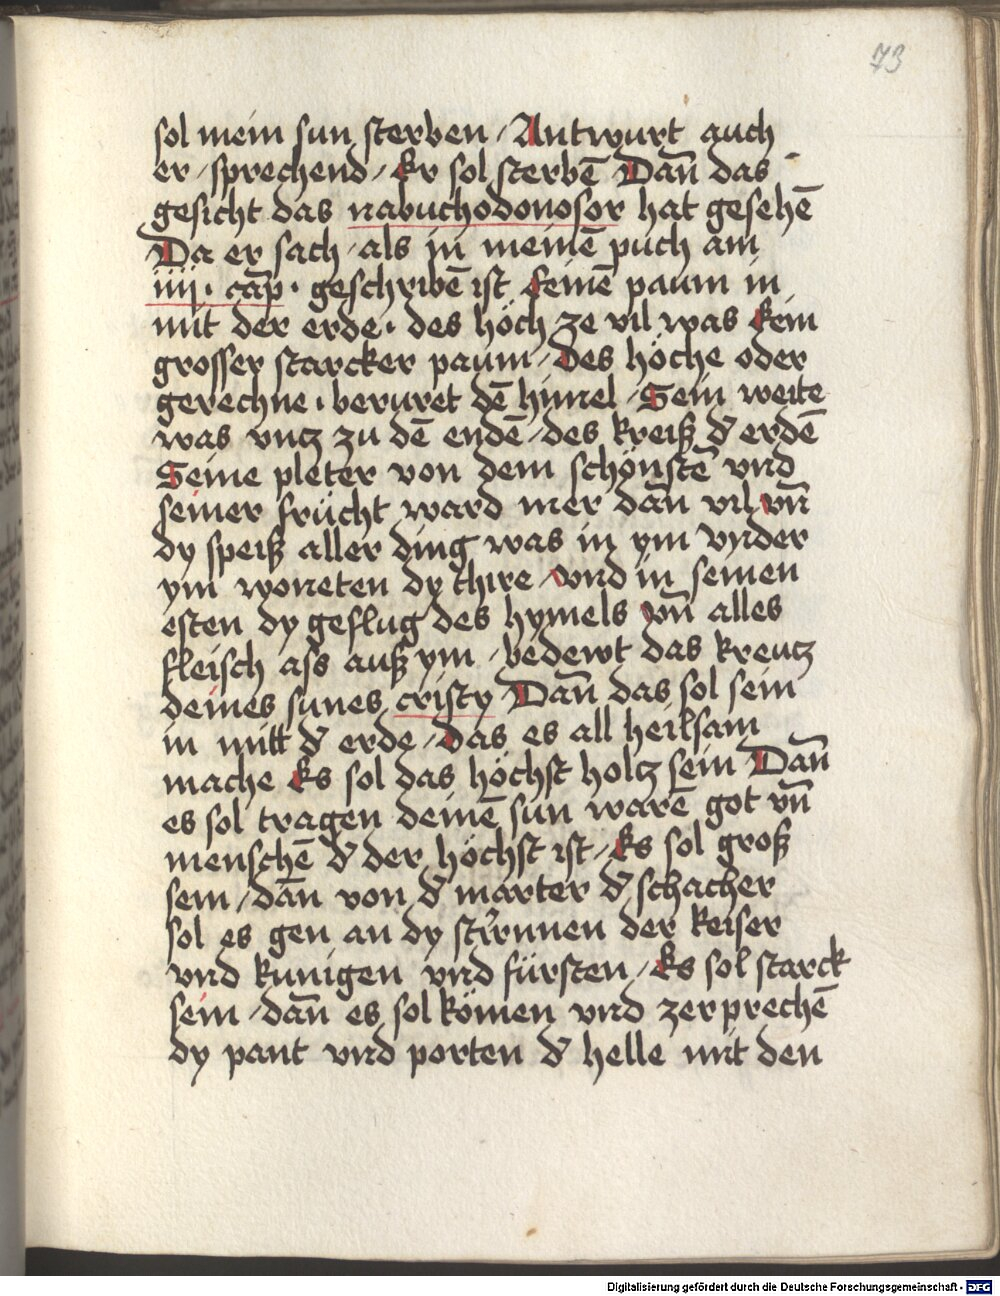 73
sol mein sun sterben / Antwurt auch
er / sprechend / Er sol sterbē Dañ das
gesicht das nabuchodonosor hat gesehē
Da er sach / als in meinē puch am
iiij · cap̄ · geschribē ist Seinē paum in
mit der erde · des höch ze vil was Ein
grosser starcker paum / Des höche oder
gerechne · beruret dē himel / Sein weite
was vntz zu dē endē / des kreiß d' erdē
Seine pleter von dem schönstē vnd
seiner frücht ward mer dañ vil vñ
dy speiß aller ding was in ym Vnder
ym woneten dy thire / vnd in seinen
esten dy geflug des hymels vñ alles
fleisch ass auß ym / bedewt das kreutz
deines sunes cristy Dañ das sol sein
in mitt d' erde / Das es all heilsam
mache Es sol das höchst holtz sein Dañ
es sol tragen deinē sun warē got vñ
menschē d' der höchst ist / Es sol groß
sein / dañ von d' marter d' schacher
sol es gen an dy stirnnen der keiser
vnd kunigen vnd fürsten / Es sol starck
sein / dañ es sol kömen vnd zerprechē
dy pant vnd porten d' helle mit den
Digitalisierung gefördert durch die Deutsche Forschungsgemeinschaft - DFG